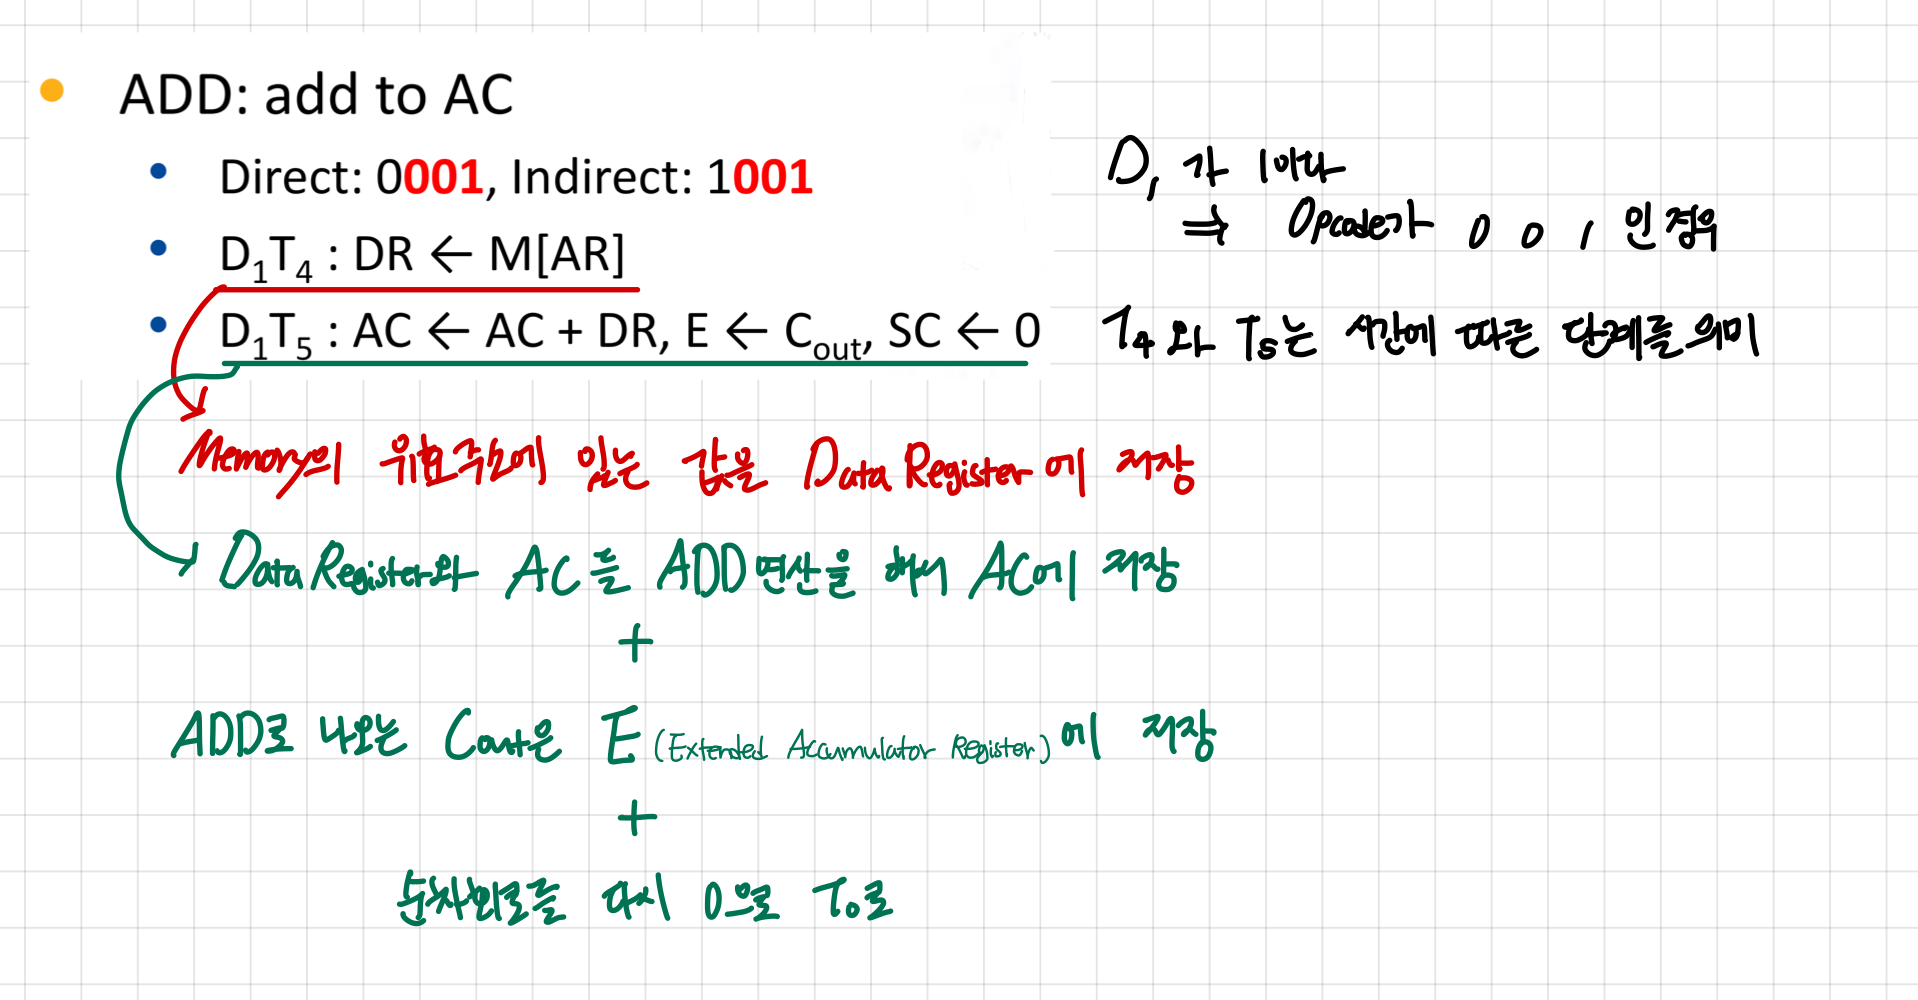 ADD: add to AC
Direct: 0001, Indirect: 1001
D₁T₄ : DR ← M[AR]
D₁T₅ : AC ← AC + DR, E ← Cout, SC ← 0
D₁ 가 1이다
⇒ Opcode가 0 0 1 인 경우
T₄ 와 T₅는 시간에 따른 단계를 의미
Memory의 유효주소에 있는 값을 Data Register에 저장
Data Register와 AC를 ADD연산을 해서 AC에 저장
+
ADD로 나오는 Cout은 E (Extended Accumulator Register)에 저장
+
순차회로를 다시 0으로 T₀로